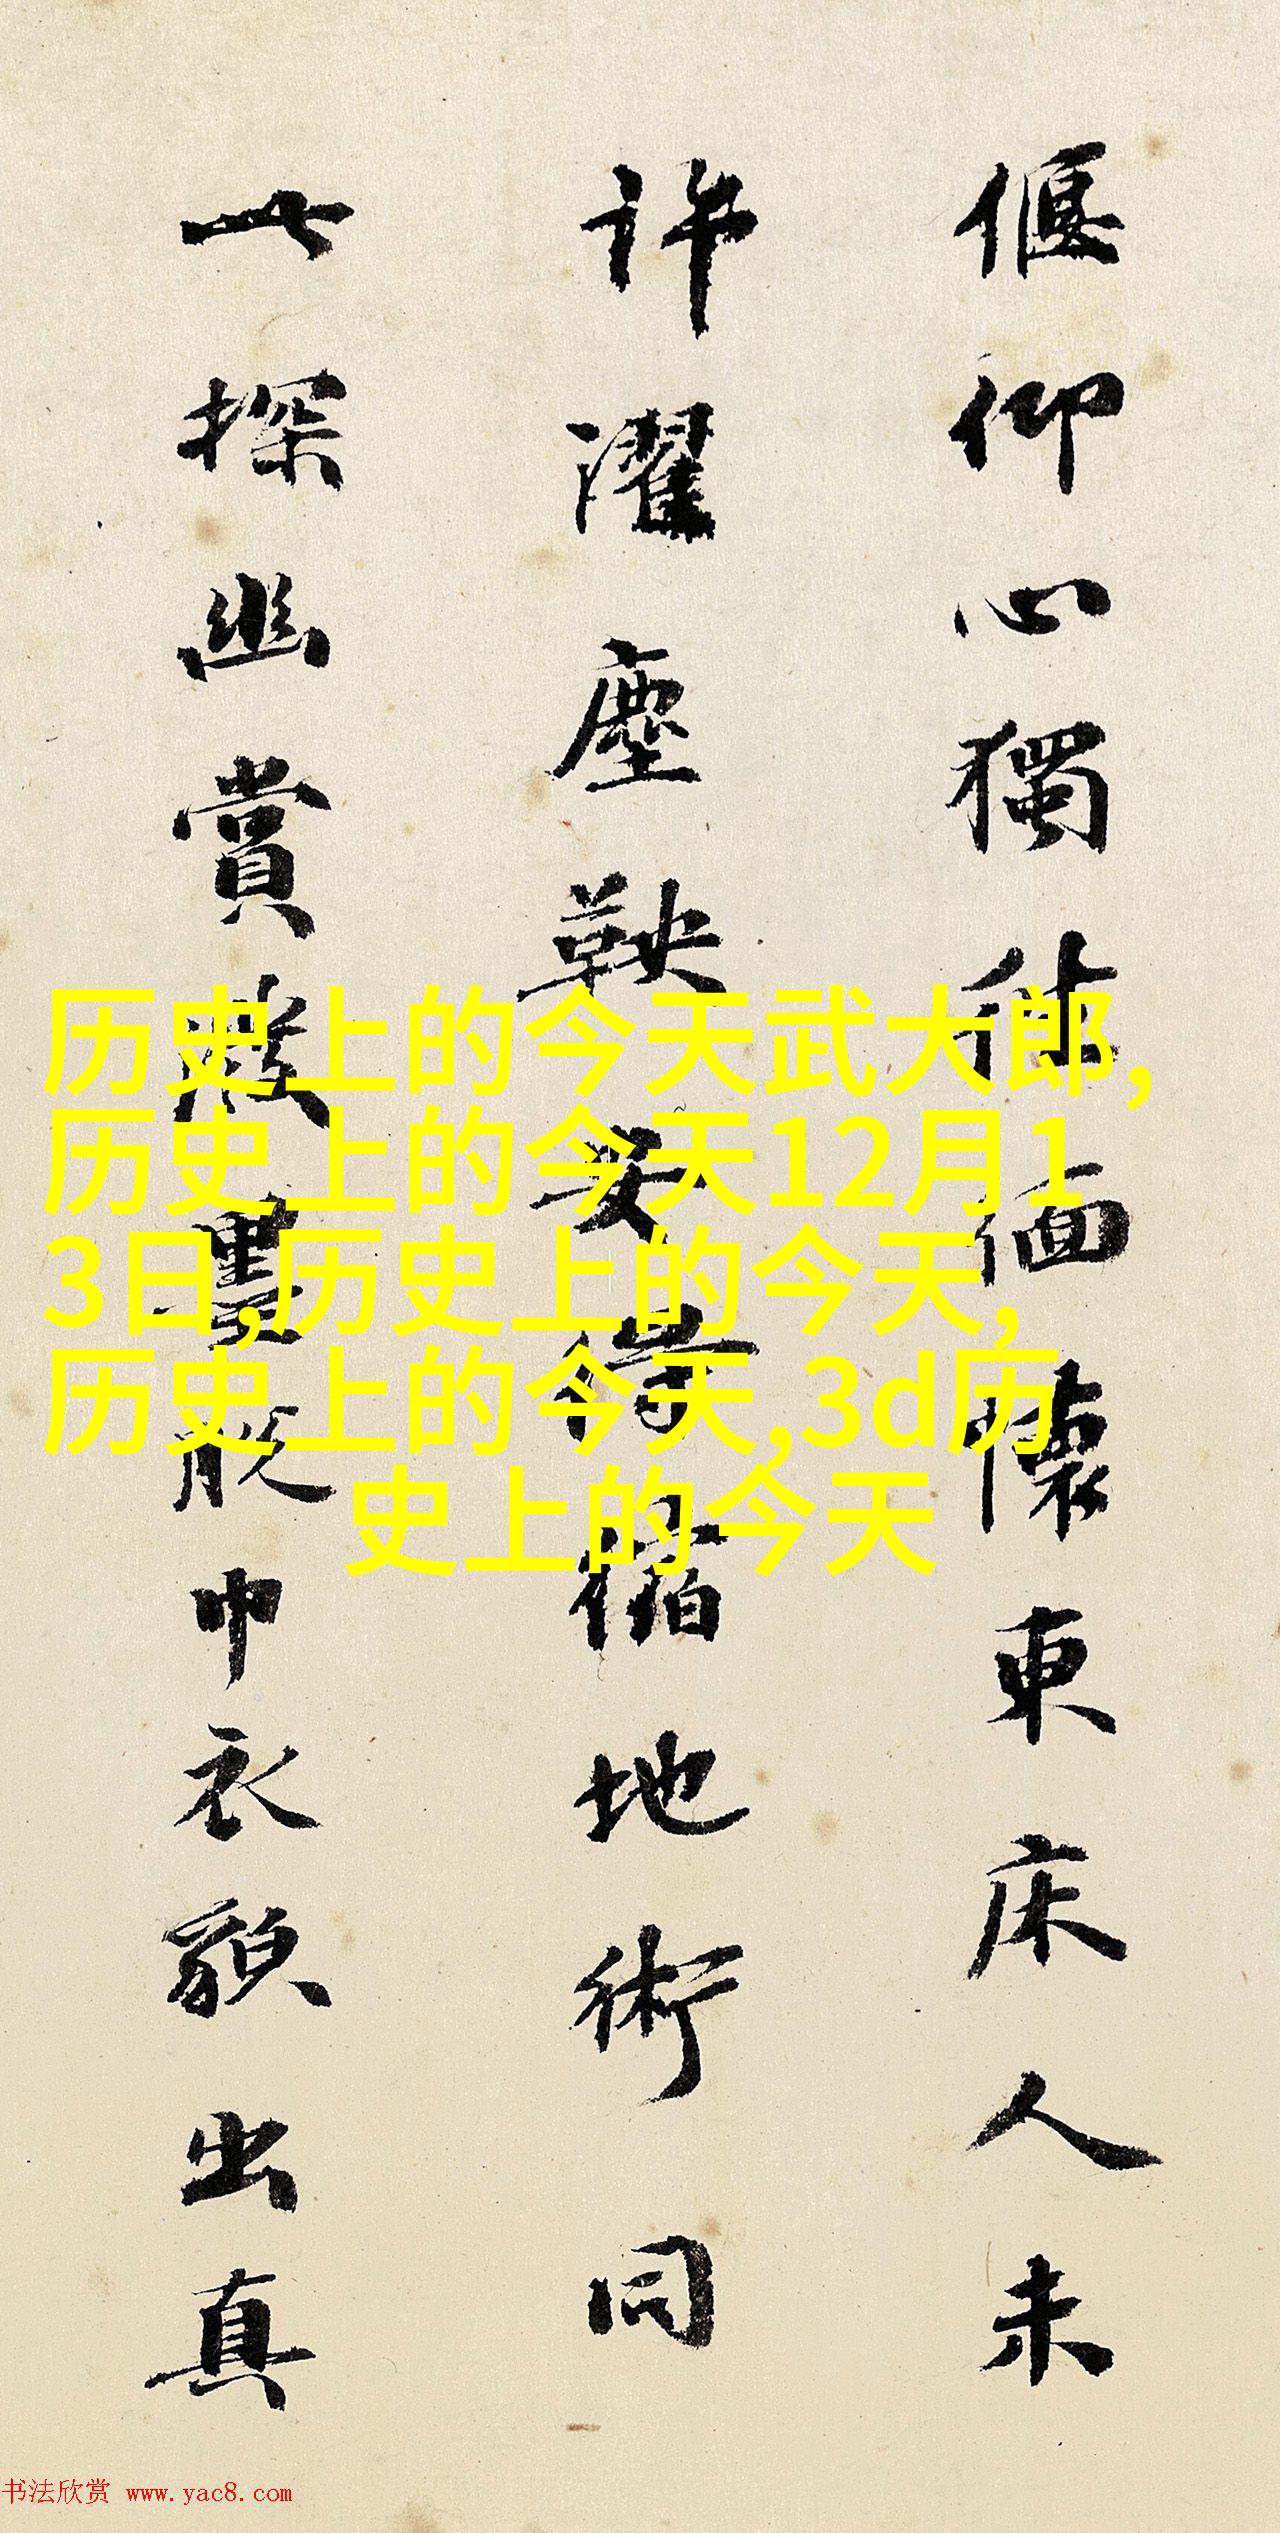 偃仰心獨緬懷東床人未
許濯塵鞅安得縮地術同
探幽賞脫巾衣貌出真
历史上的今天武大郎,
历史上的今天12月1
3日,历史上的今天,
历史上的今天,3d历
史上的今天
书法欣赏 www.yac8.com